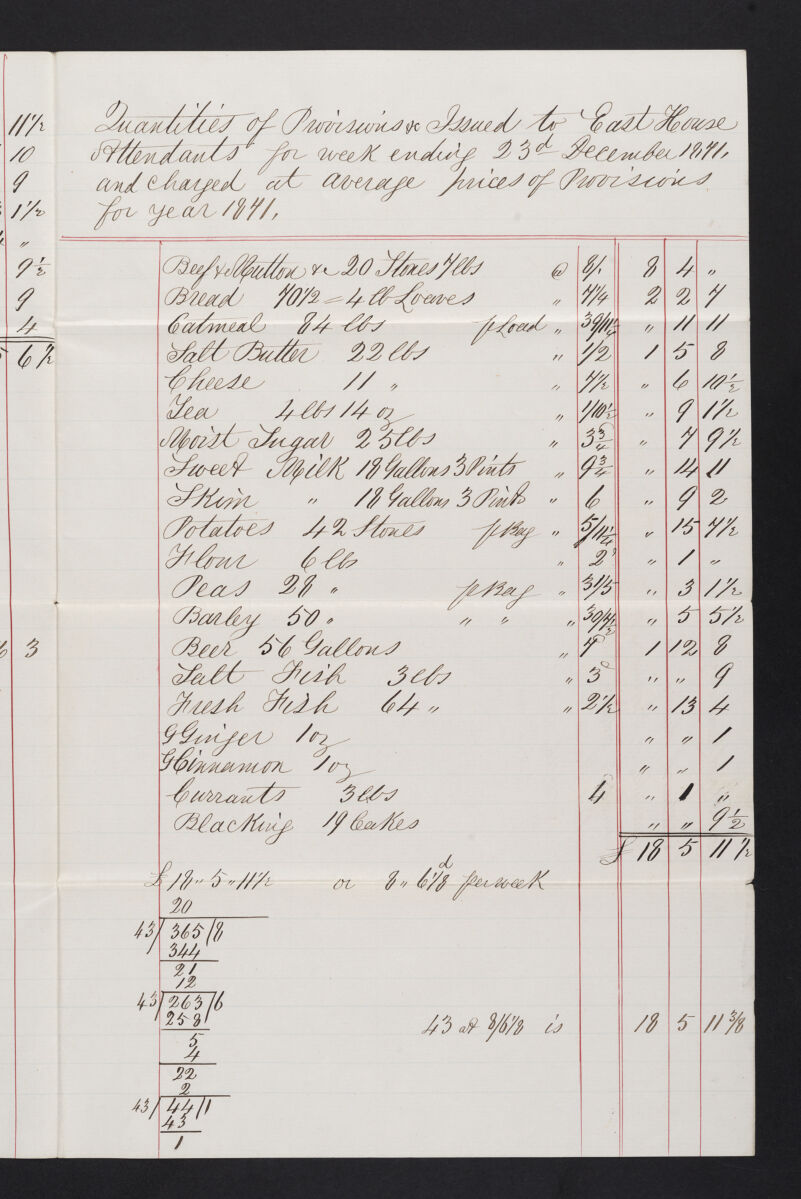 11 1/2
10
9
1 1/2
"
9 1/2
9
4
6 1/2
3
Quantities of Provisions &c Issued to East House
Attendants for week ending 23d December 1871,
and charged at average prices of Provisions
for year 1871,
Beef & Mutton &c 20 Stones 7 lbs @ 8/. 8 4 "
Bread 70 1/2 = 4 lb Loaves " 7 1/4 2 2 7
Oatmeal 84 lbs p Load " 39/11 1/2 " 11 11
Salt Butter 22 lbs " 1/2 1 5 8
Cheese 11 " " 7 1/2 " 6 10 1/2
Tea 4 lbs 14 oz " 1/10 1/2 " 9 1 1/2
Moist Sugar 25 lbs " 3 3/4 " 7 9 1/2
Sweet Milk 18 Gallons 3 Pints " 9 3/4 " 14 11
Skim " 18 Gallons 3 Pints " 6 " 9 2
Potatoes 42 Stones p Bag " 5/11 1/4 " 15 7 1/2
Flour 6 lbs " 2 " 1 "
Peas 28 " p Bag " 31/5 " 3 1 1/2
Barley 50 " " " " 30/4 1/2 " 5 5 1/2
Beer 56 Gallons " 7 1 12 8
Salt Fish 3 lbs " 3 " " 9
Fresh Fish 64 " " 2 1/2 " 13 4
G Ginger 1 oz " " 1
G Cinnamon 1 oz " " 1
Currants 3 lbs 4 " 1 "
Blacking 19 Cakes " " 9 1/2
£ 18 5 11 1/2
£ 18 " 5 " 11 1/2 or 8 " 6 1/8 d per week
20
43/ 365 /8
344
21
12
43/ 263 /6
258
5
4
22
2
43/ 44 /1
43
1
43 at 8/6 1/8 is 18 5 11 3/8